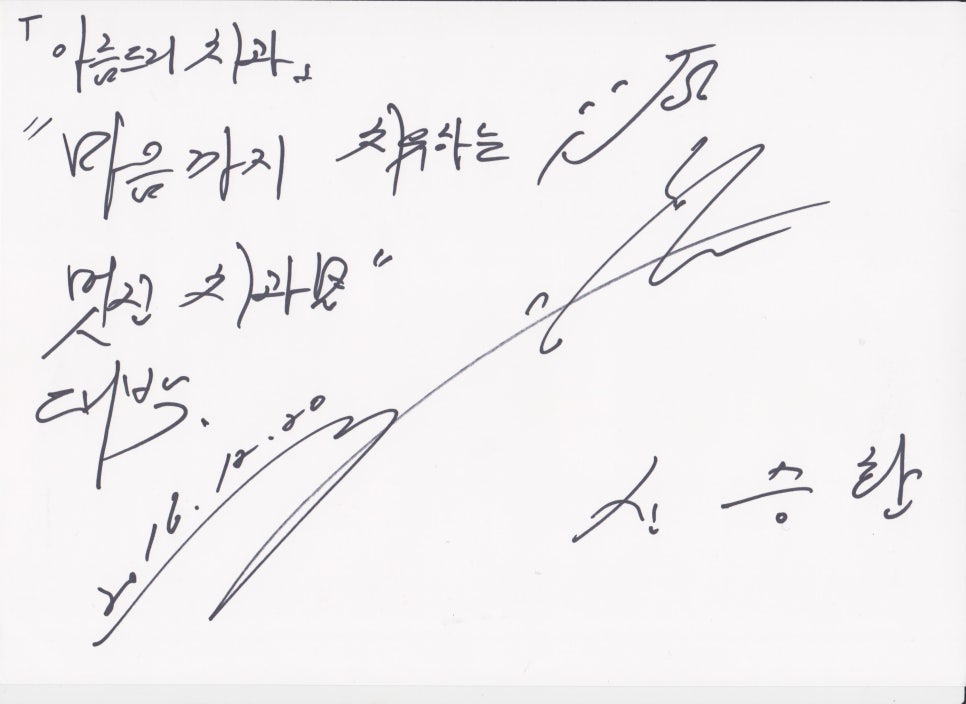 「아름드리 치과」
"마음까지 치유하는
멋진 치과로"
대박.
2016. 12. 20
신승환